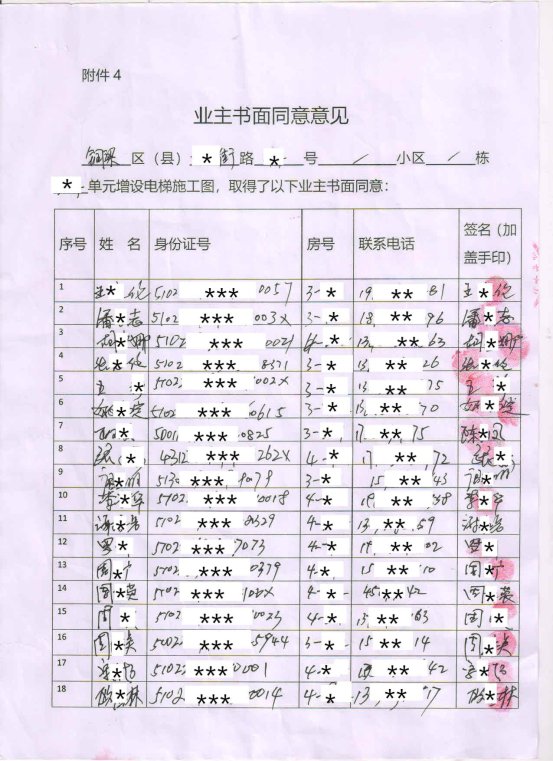 附件 4
业主书面同意意见
铜梁 区（县） * 街 路 * 号 / 小区 / 栋
* 单元增设电梯施工图，取得了以下业主书面同意：
序号 姓 名 身份证号 房号 联系电话 签名（加盖手印）
1 王*伦 5102 *** 0057 3-* 19 ** 81 王*伦
2 潘*志 5102 *** 003X 3-* 13 ** 96 潘*志
3 胡*娜 5102 *** 0021 4-* 13 ** 63 胡*娜
4 张*伦 5102 *** 8371 3-* 13 ** 26 张*伦
5 王* 5102 *** 002X 3-* 13 ** 75 王*
6 * 5102 *** 0615 3-* 13 ** 70 *
7 * 5001 *** 0825 3-* 17 ** 75 陈*
8 * 4312 *** 262X 4-* 17 ** 72 *
9 * 5130 *** 1079 3-* 15 ** 43 *
10 *华 5102 *** 0018 4-* 19 ** 38 *华
11 * 5102 *** 0329 4-* 13 ** 59 *
12 罗* 5102 *** 7073 4-* 19 ** 02 罗*
13 周*广 5102 *** 0379 4-* 15 ** 10 周*广
14 周*英 5102 *** 4-* ** 42 周*英
15 周* 5102 *** 0023 4-* 13 ** 63 周*
16 周*英 5002 *** 5944 3-* 15 ** 14 周*英
17 * 5102 *** 0001 4-* ** 42 *
18 *林 5102 *** 0014 4-* 13 ** 17 *林